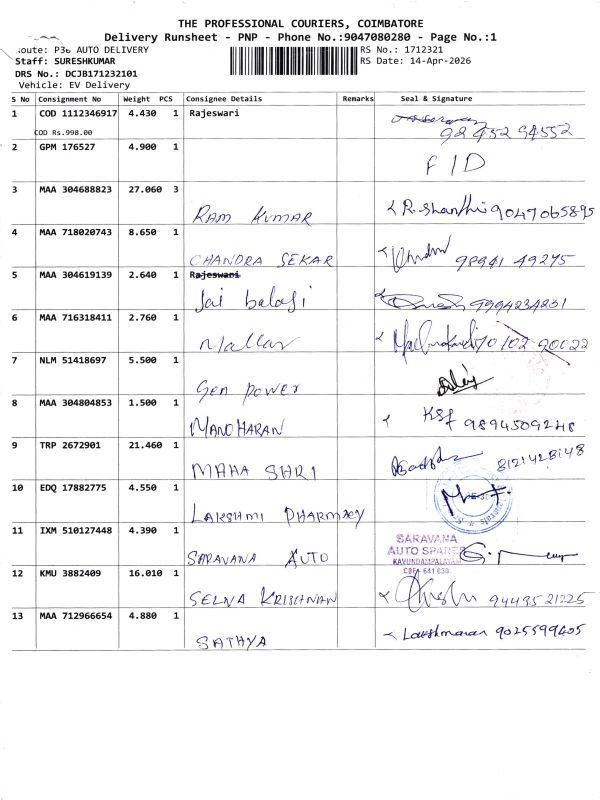 THE PROFESSIONAL COURIERS, COIMBATORE
Delivery Runsheet - PNP - Phone No.:9047080280 - Page No.:1
Route: P36 AUTO DELIVERY RS No.: 1712321
Staff: SURESHKUMAR RS Date: 14-Apr-2026
DRS No.: DCJB171232101
Vehicle: EV Delivery
S No Consignment No Weight PCS Consignee Details Remarks Seal & Signature
1 COD 1112346917 4.430 1 Rajeswari
COD Rs.998.00
2 GPM 176527 4.900 1 F/D
3 MAA 304688823 27.060 3
RAM KUMAR R.Shanthi 9047065895
4 MAA 718020743 8.650 1
CHANDRA SEKAR 98941 49275
5 MAA 304619139 2.640 1 Rajeswari
Jai balaji 9994234251
6 MAA 716318411 2.760 1
Mallar
7 NLM 51418697 5.500 1
Gen power
8 MAA 304804853 1.500 1
MANOHARAN KSf 9894509248
9 TRP 2672901 21.460 1
MAHA SHRI 8121428148
10 EDQ 17882775 4.550 1
LAKSHMI PHARMACY
11 IXM 510127448 4.390 1 SARAVANA
AUTO SPARES
SARAVANA AUTO KAVUNDAMPALAYAM
12 KMU 3882409 16.010 1 CBE-641 030
SELVA KRISHNAN 9449521225
13 MAA 712966654 4.880 1
SATHYA Lakshmanan 9025599405